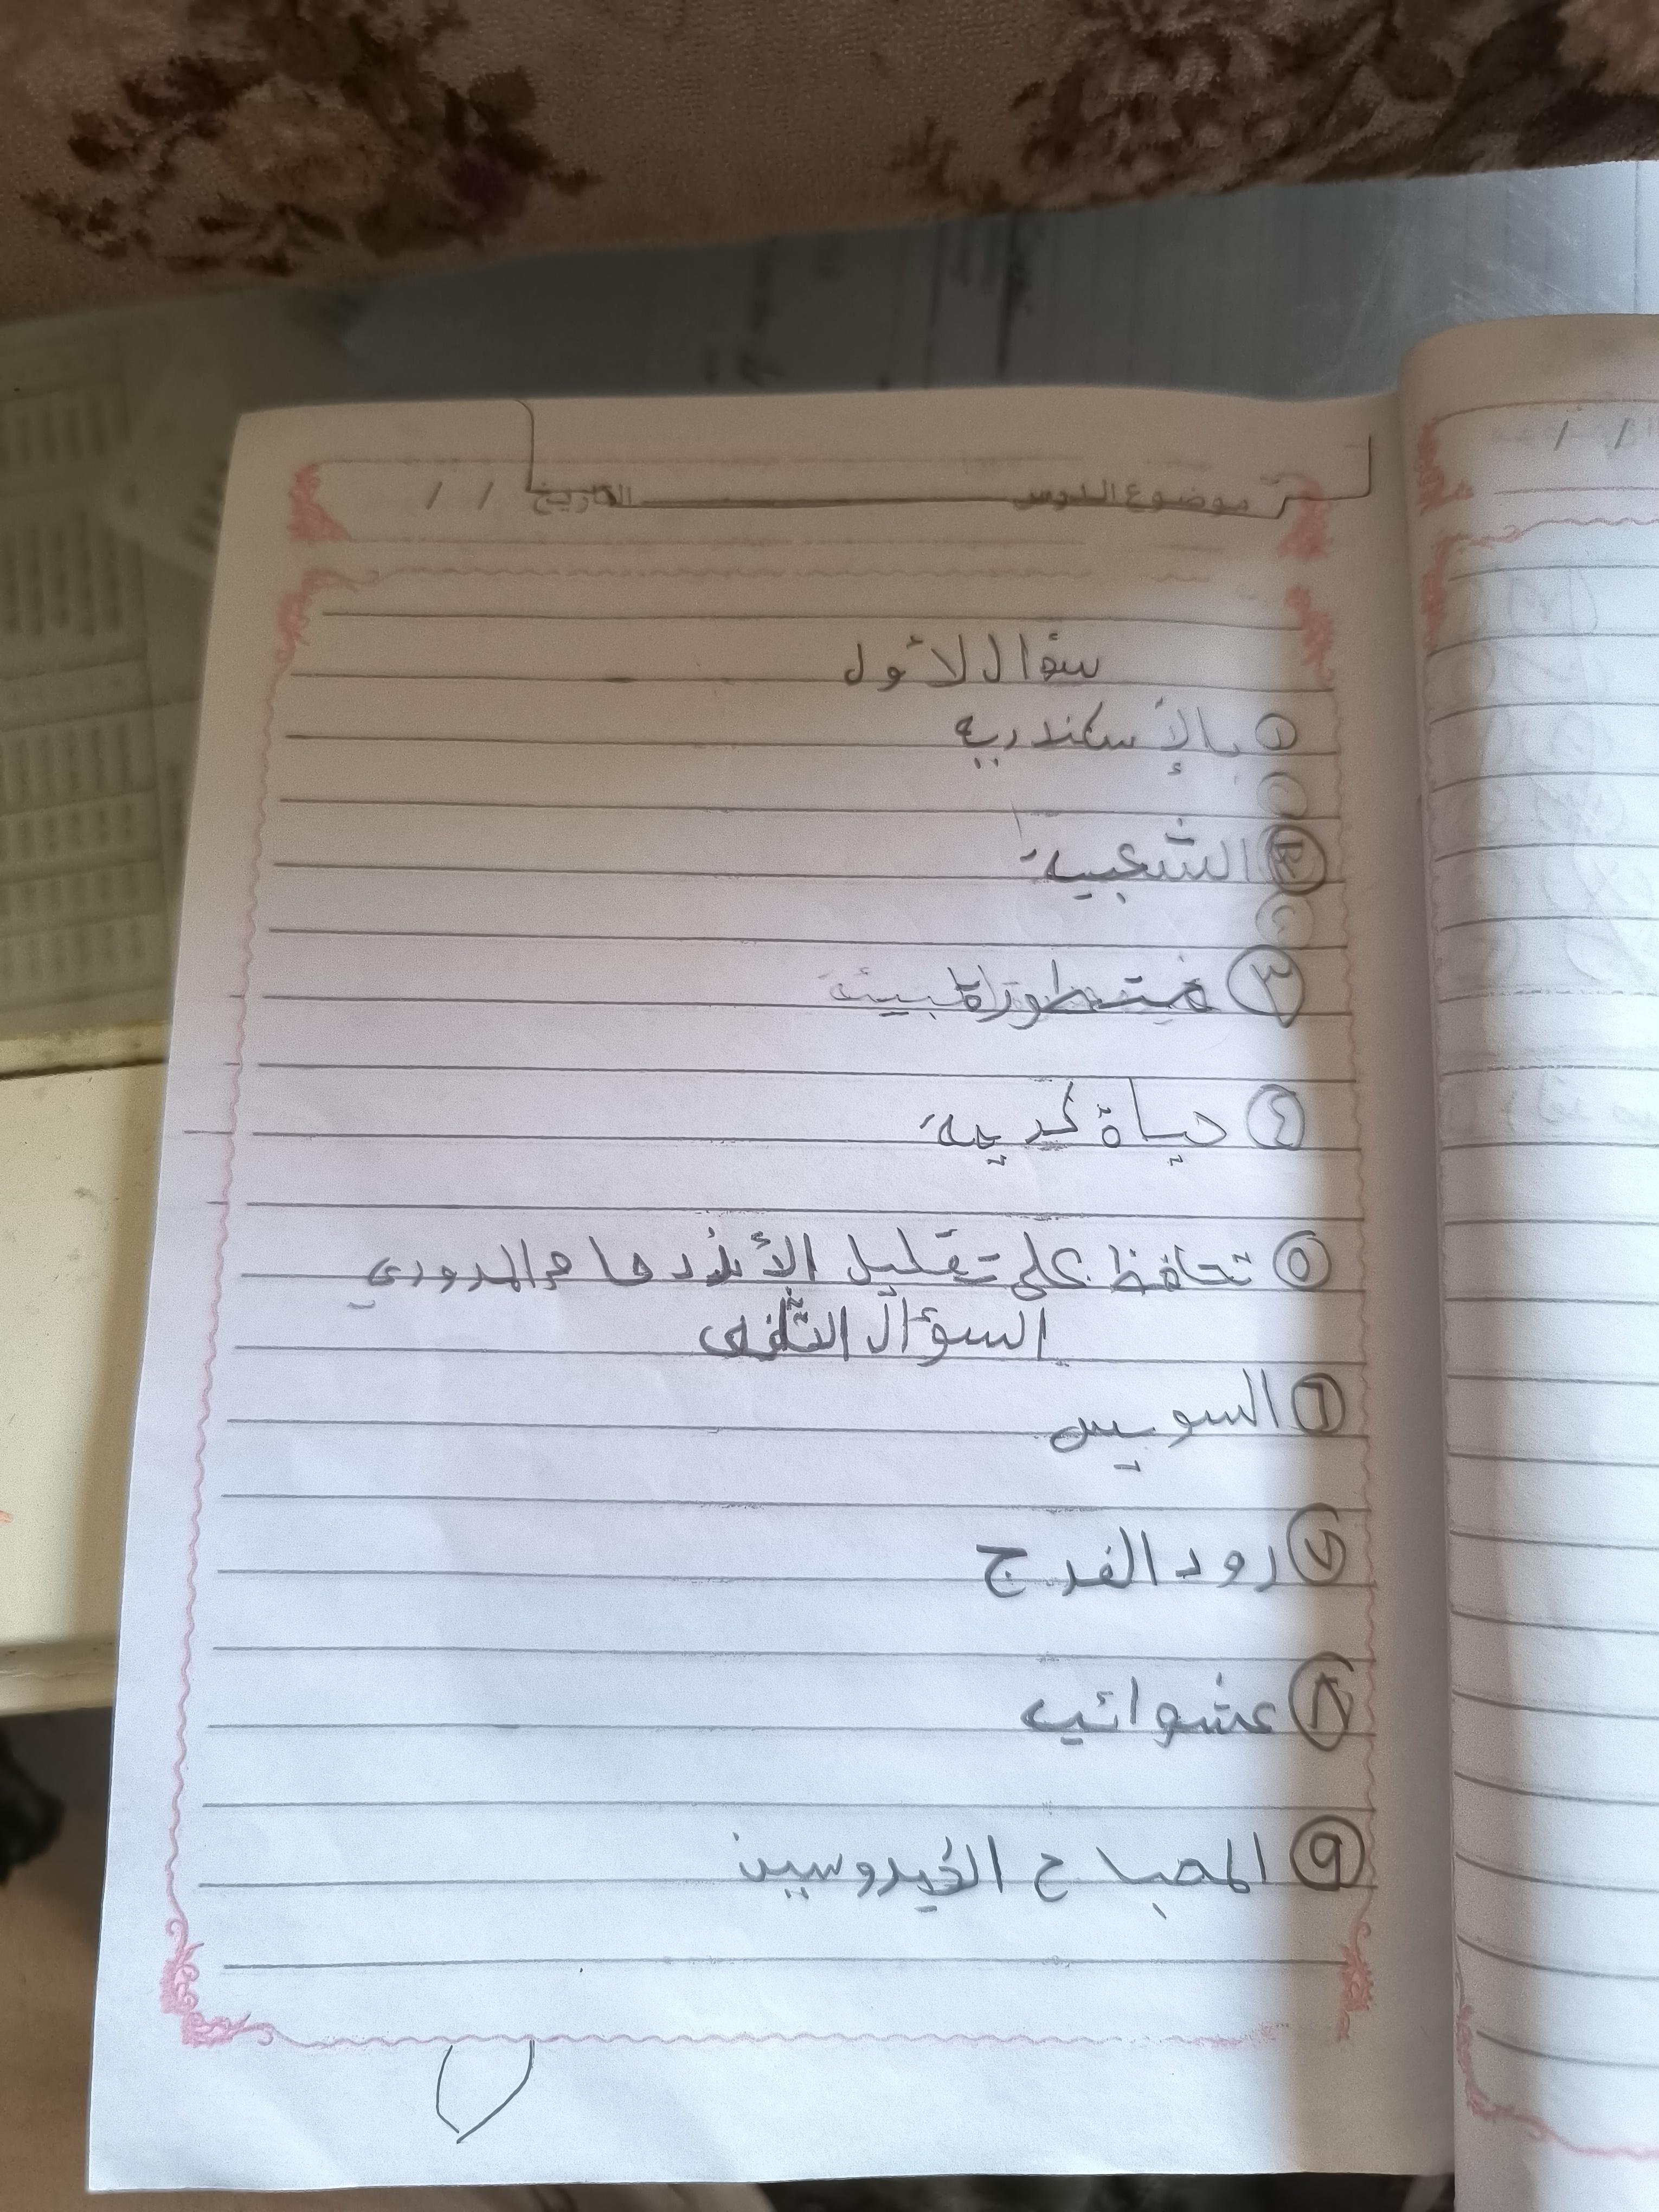 موضوع الدرس التاريخ / /
سؤال لائول
① بالإسكندريه
② الشعبيه
③ بيئة
④ حياة كريمه
⑤ تحافظ على تقليل الأزدحام المروري
السؤال الثانى
⑥ السويس
⑦ رود الفرج
⑧ عشوائيه
⑨ المصباح الكيروسين